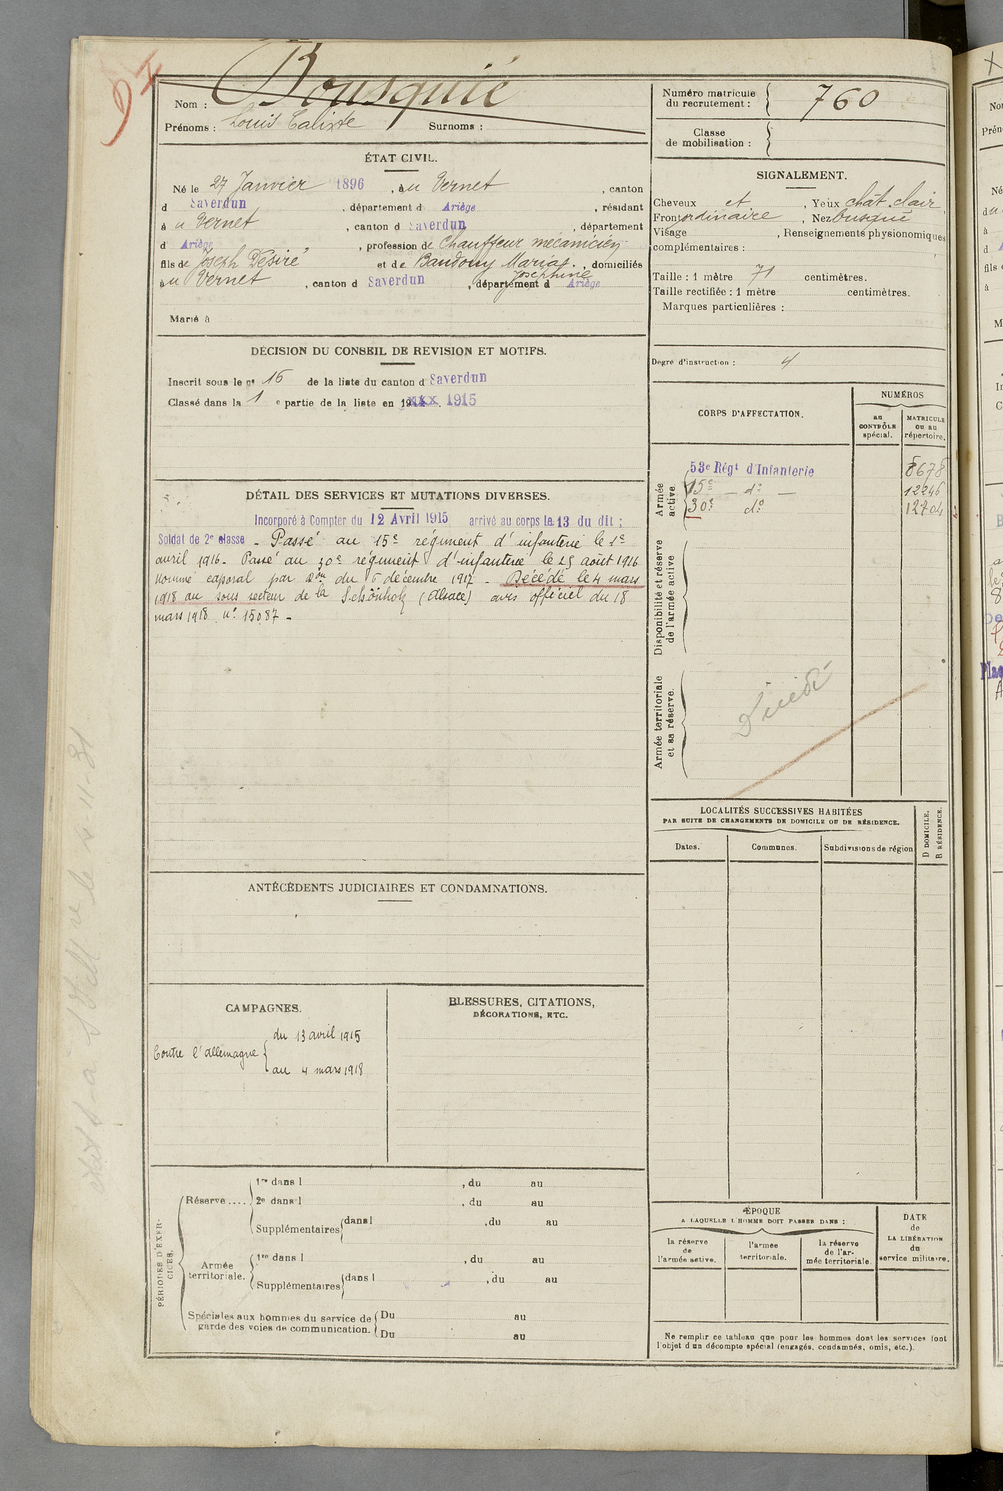 Bousquié
Nom :
Prénoms : Louis Calixte Surnoms :
ÉTAT CIVIL.
Né le 27 Janvier 1896, à u Vernet, canton
d Saverdun, département d Ariège, résidant
à u Vernet, canton d Saverdun, département
d Ariège, profession de Chauffeur mécanicien
fils de Joseph Désiré et de Baudouy Maria, domiciliés
Joséphine
à u Vernet, canton d Saverdun, département d Ariège
Marié à
DÉCISION DU CONSEIL DE REVISION ET MOTIFS.
Inscrit sous le nº 16 de la liste du canton d Saverdun
Classé dans la 1 e partie de la liste en 19 1915
DÉTAIL DES SERVICES ET MUTATIONS DIVERSES.
Incorporé à Compter du 12 Avril 1915 arrivé au corps le 13 du dit ;
Soldat de 2e classe - Passé au 15e régiment d'infanterie le 1e
avril 1916. Passé au 30e régiment d'infanterie le 25 août 1916
Nommé caporal par don du 6 décembre 1917 - Décédé le 4 mars
1918 au sous secteur de la Schönholz (Alsace) avis officiel du 18
mars 1918 nº 15087 -
ANTÉCÉDENTS JUDICIAIRES ET CONDAMNATIONS.
CAMPAGNES.
Contre l'allemagne { du 13 avril 1915
au 4 mars 1918
BLESSURES, CITATIONS,
DÉCORATIONS, ETC.
PÉRIODES D'EXERCICES.
Réserve ....
1re dans l , du au
2e dans l , du au
Supplémentaires dans l , du au
Armée
territoriale.
1re dans l , du au
Supplémentaires dans l , du au
Spéciales aux hommes du service de
garde des voies de communication.
Du au
Du au
Numéro matricule
du recrutement : 760
Classe
de mobilisation :
SIGNALEMENT.
Cheveux et , Yeux chât. clair
Front ordinaire , Nez busqué
Visage , Renseignements physionomiques
complémentaires :
Taille : 1 mètre 71 centimètres.
Taille rectifiée : 1 mètre centimètres.
Marques particulières :
Degré d'instruction : 4
CORPS D'AFFECTATION.
NUMÉROS
au
CONTRÔLE
spécial.
MATRICULE
ou au
répertoire.
Armée
active.
53e Régt d'Infanterie 8678
15e - dº - 12246
30e dº 12704
Disponibilité et réserve
de l'armée active.
Armée territoriale
et sa réserve.
Décédé
LOCALITÉS SUCCESSIVES HABITÉES
PAR SUITE DE CHANGEMENTS DE DOMICILE OU DE RÉSIDENCE.
Dates. Communes. Subdivisions de région
D DOMICILE.
R RÉSIDENCE.
ÉPOQUE
A LAQUELLE L'HOMME DOIT PASSER DANS :
la réserve
de
l'armée active.
l'armée
territoriale.
la réserve
de l'ar-
mée territoriale.
DATE
de
LA LIBÉRATION
du
service militaire.
Ne remplir ce tableau que pour les hommes dont les services font
l'objet d'un décompte spécial (engagés, condamnés, omis, etc.).